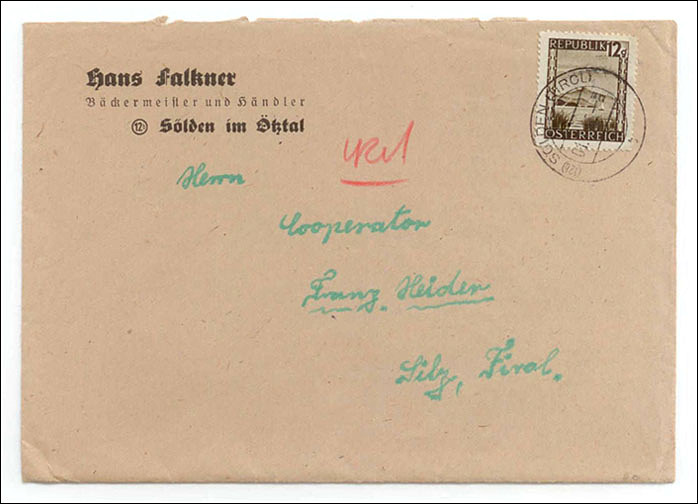 Hans Falkner
Bäckermeister und Händler
(12b) Sölden im Ötztal
REPUBLIK 12g
ÖSTERREICH
SÖLDEN (TIROL)
Herrn
Cooperator
Franz Heiden
Silz, Tirol.